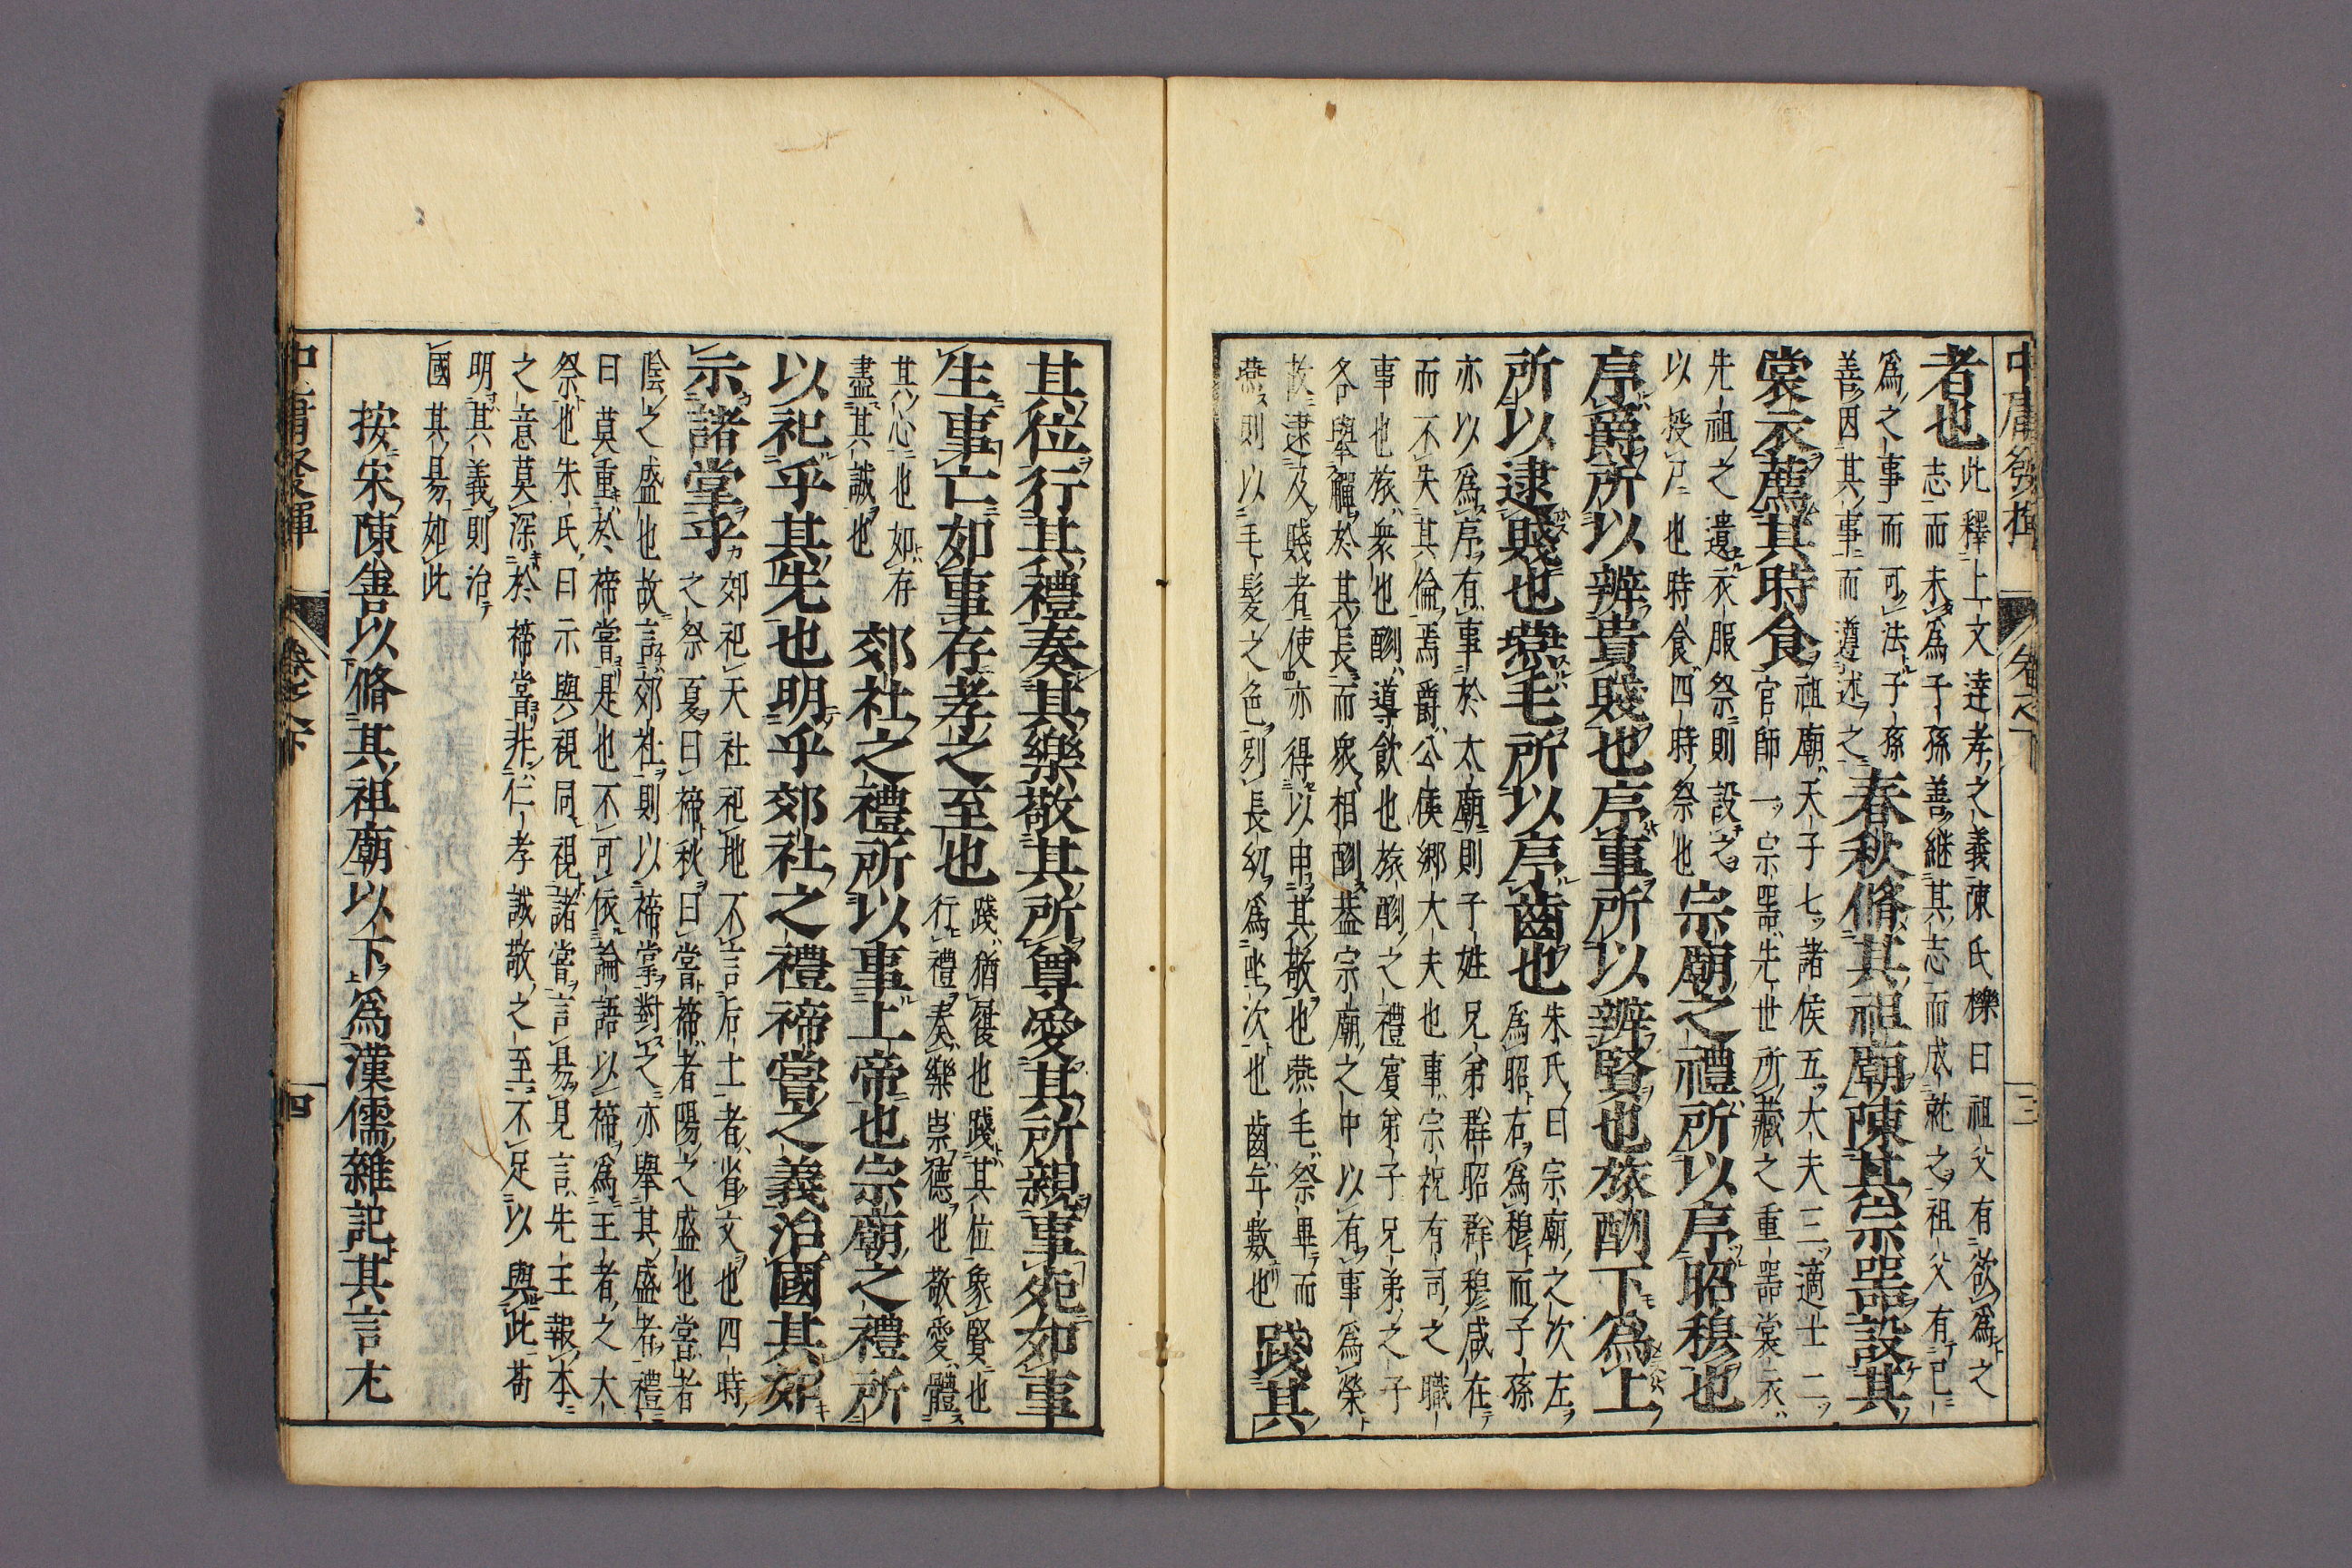 中庸發揮 卷之下 三
者也
此釋上文達孝之義陳氏櫟曰祖父有欲爲之
志而未爲子孫善繼其志而成就之祖父有已
爲之事而可法子孫
善因其事而遵述之
春秋脩其祖廟陳其宗器設其
裳衣薦其時食
祖廟天子七諸侯五大夫三適士二
官師一宗器先世所藏之重器裳衣
先祖之遺衣服祭則設之
以授尸也時食四時祭也
宗廟之禮所以序昭穆也
序爵所以辨貴賤也序事所以辨賢也旅酬下爲上
所以逮賤也燕毛所以序齒也
朱氏曰宗廟之次左
爲昭右爲穆而子孫
亦以爲序有事於太廟則子姓兄弟群昭群穆咸在
而不失其倫焉爵公侯卿大夫也事宗祝有司之職
事也旅衆也酬導飲也旅酬之禮賓弟子兄弟之子
各舉觶於其長而衆相酬蓋宗廟之中以有事爲榮
故逮及賤者使亦得以申其敬也燕毛祭畢而
燕則以毛髮之色別長幼爲坐次也齒年數也
踐其
其位行其禮奏其樂敬其所尊愛其所親事死如事
生事亡如事存孝之至也
踐猶履也踐其位象賢也
行禮奏樂崇德也敬愛體
其心也如存
盡其誠也
郊社之禮所以事上帝也宗廟之禮所
以祀乎其先也明乎郊社之禮禘嘗之義治國其如
示諸掌乎
郊祀天社祀地不言后土者省文也四時
之祭夏曰禘秋曰嘗禘者陽之盛也嘗者
陰之盛也故言郊社則以禘嘗對之亦舉其盛者禮
曰莫重於禘嘗是也不可依論語以禘爲王者之大
祭也朱氏曰示與視同視諸掌言易見言先王報本
之意莫深於禘嘗非仁孝誠敬之至不足以與此苟
明其義則治
國其易如此
按宋陳善以脩其祖廟以下爲漢儒雜記其言尤
中庸發揮 卷之下 四